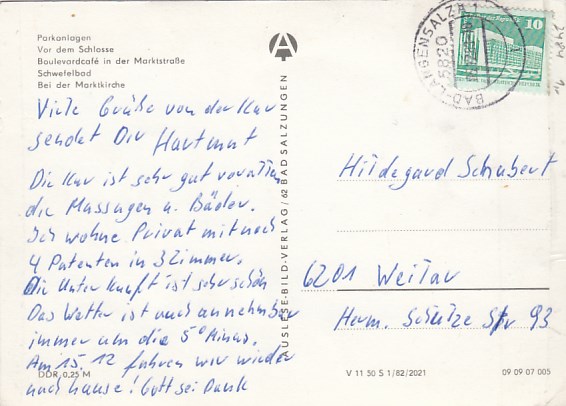 Parkanlagen
Vor dem Schlosse
Boulevardcafé in der Marktstraße
Schwefelbad
Bei der Marktkirche
Viele Grüße von der Kur
sendet Dir Hartmut
Die Kur ist sehr gut voralln
die Massagen u. Bäder.
Ich wohne Privat mit noch
4 Patenten in 3 Zimmer.
Die Unterkunft ist sehr schön
Das Wetter ist noch annehmbar
immer um die 5° Minus.
Am 15.12 fahren wir wieder
nach hause! Gott sei Dank
DDR 0,25 M
AUSLESE-BILD-VERLAG / 62 BAD SALZUNGEN
A
BAD-LANGENSALZA 1
5820
10
Hildegard Schubert
6201 Weilar
Herm. Schulze Str 93
V 11 50 S 1/82/2021
09 09 07 005